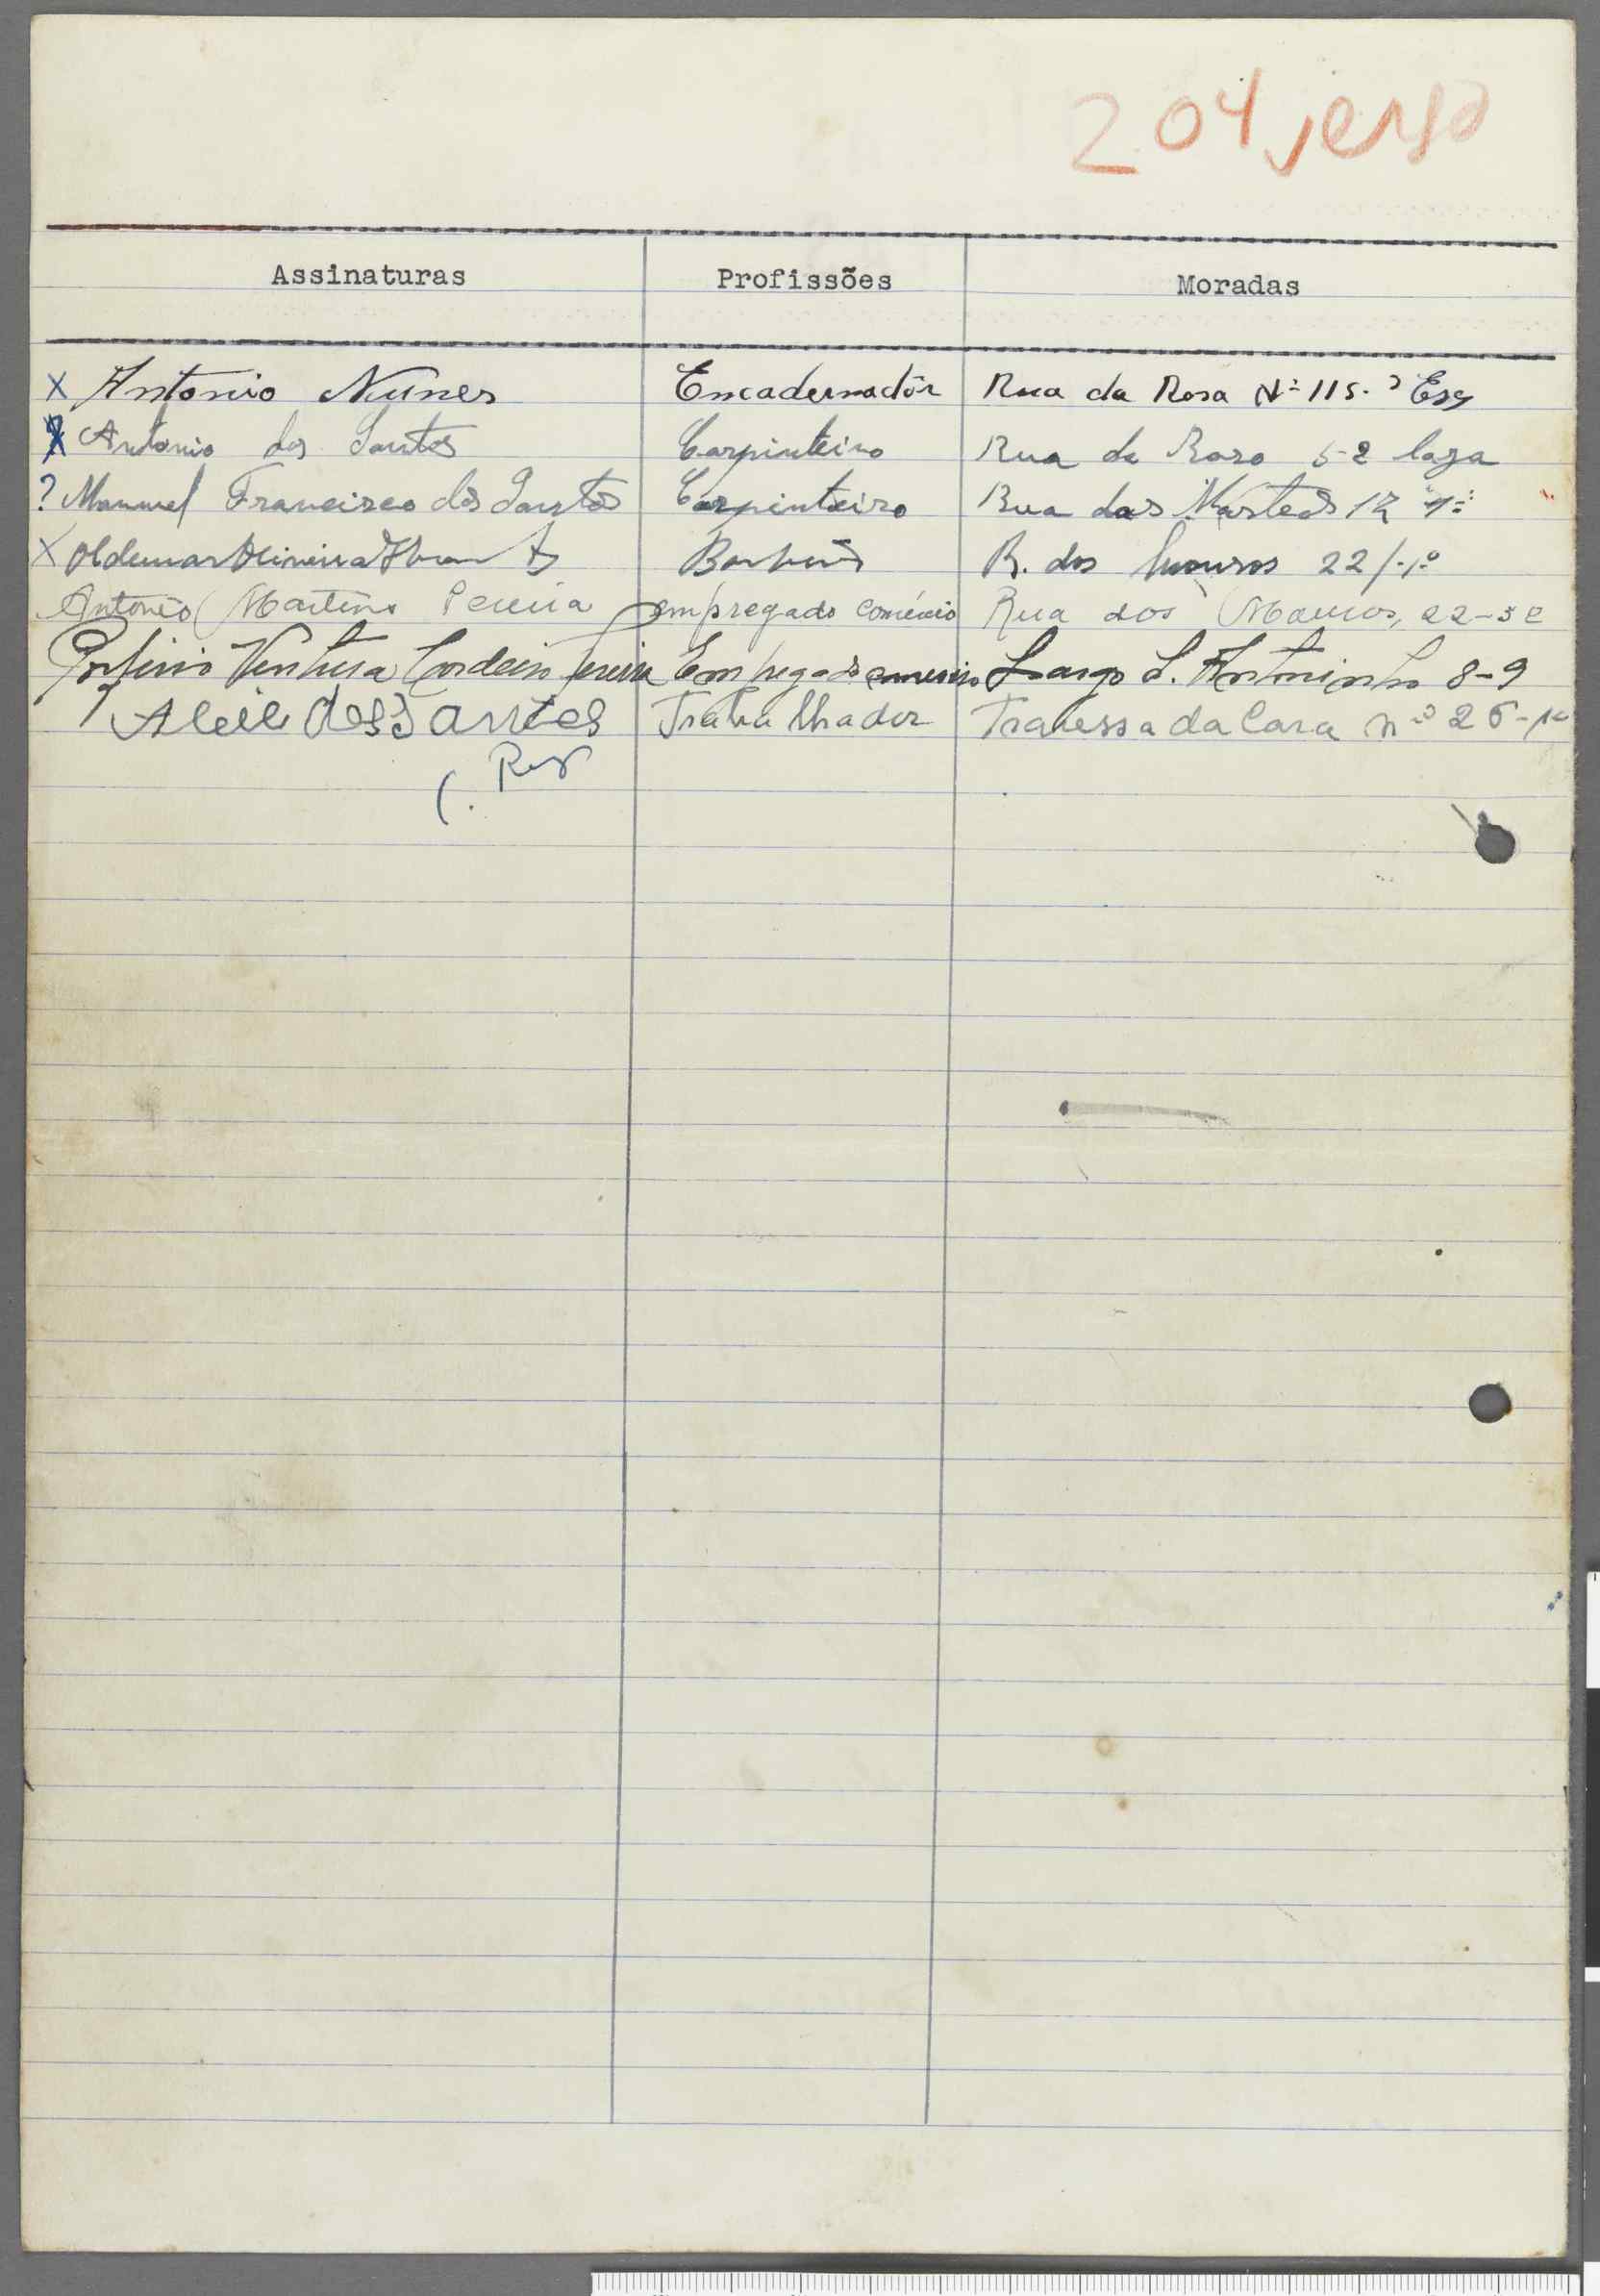 204 verso
Assinaturas Profissões Moradas
X Antonio Nunes Encadernadôr Rua da Rosa Nº 115 Esq
Antonio dos Santos Carpinteiro Rua da Roza 52 loga
? Manuel Francisco dos Santos Carpinteiro Rua das 12 1º
X Oldemar Oliveira R. dos Mouros 22/1º
Antonio Martins Pereira empregado comércio Rua dos Mouros, 22-3º
Porfirio Ventura Cordeiro Pereira Empregado comercio Largo S. Antoninho 8-9
dos Santos Trabalhador Travessa da Cara nº 26-1º